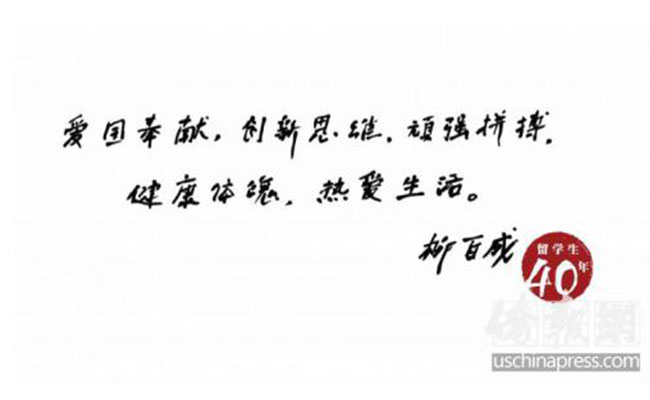 爱国奉献，创新思维，顽强拼搏，
健康体魄，热爱生活。
柳百成
留学生
40年
侨報網
uschinapress.com